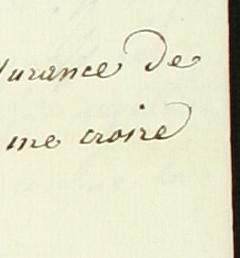 surance de
me croire